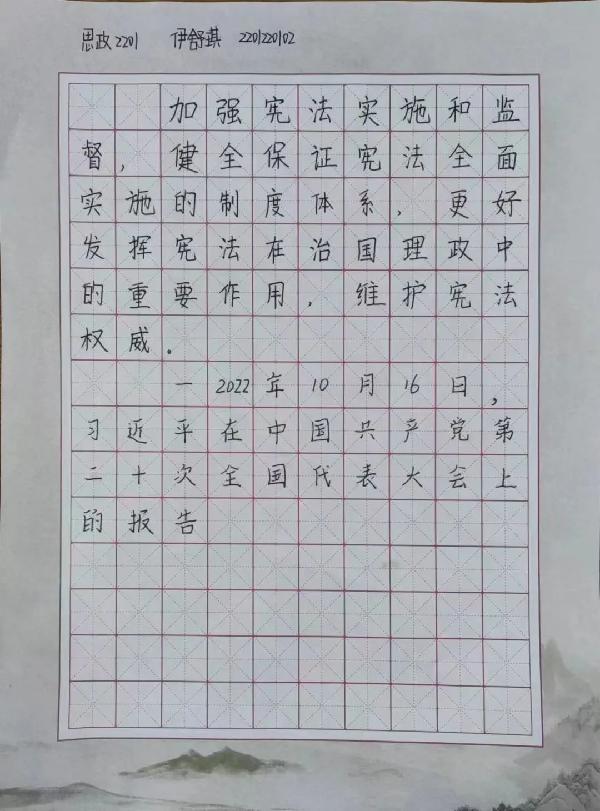 思政2201 伊舒琪 2201220102
加强宪法实施和监
督，健全保证宪法全面
实施的制度体系，更好
发挥宪法在治国理政中
的重要作用，维护宪法
权威。
—2022年10月16日，
习近平在中国共产党第
二十次全国代表大会上
的报告